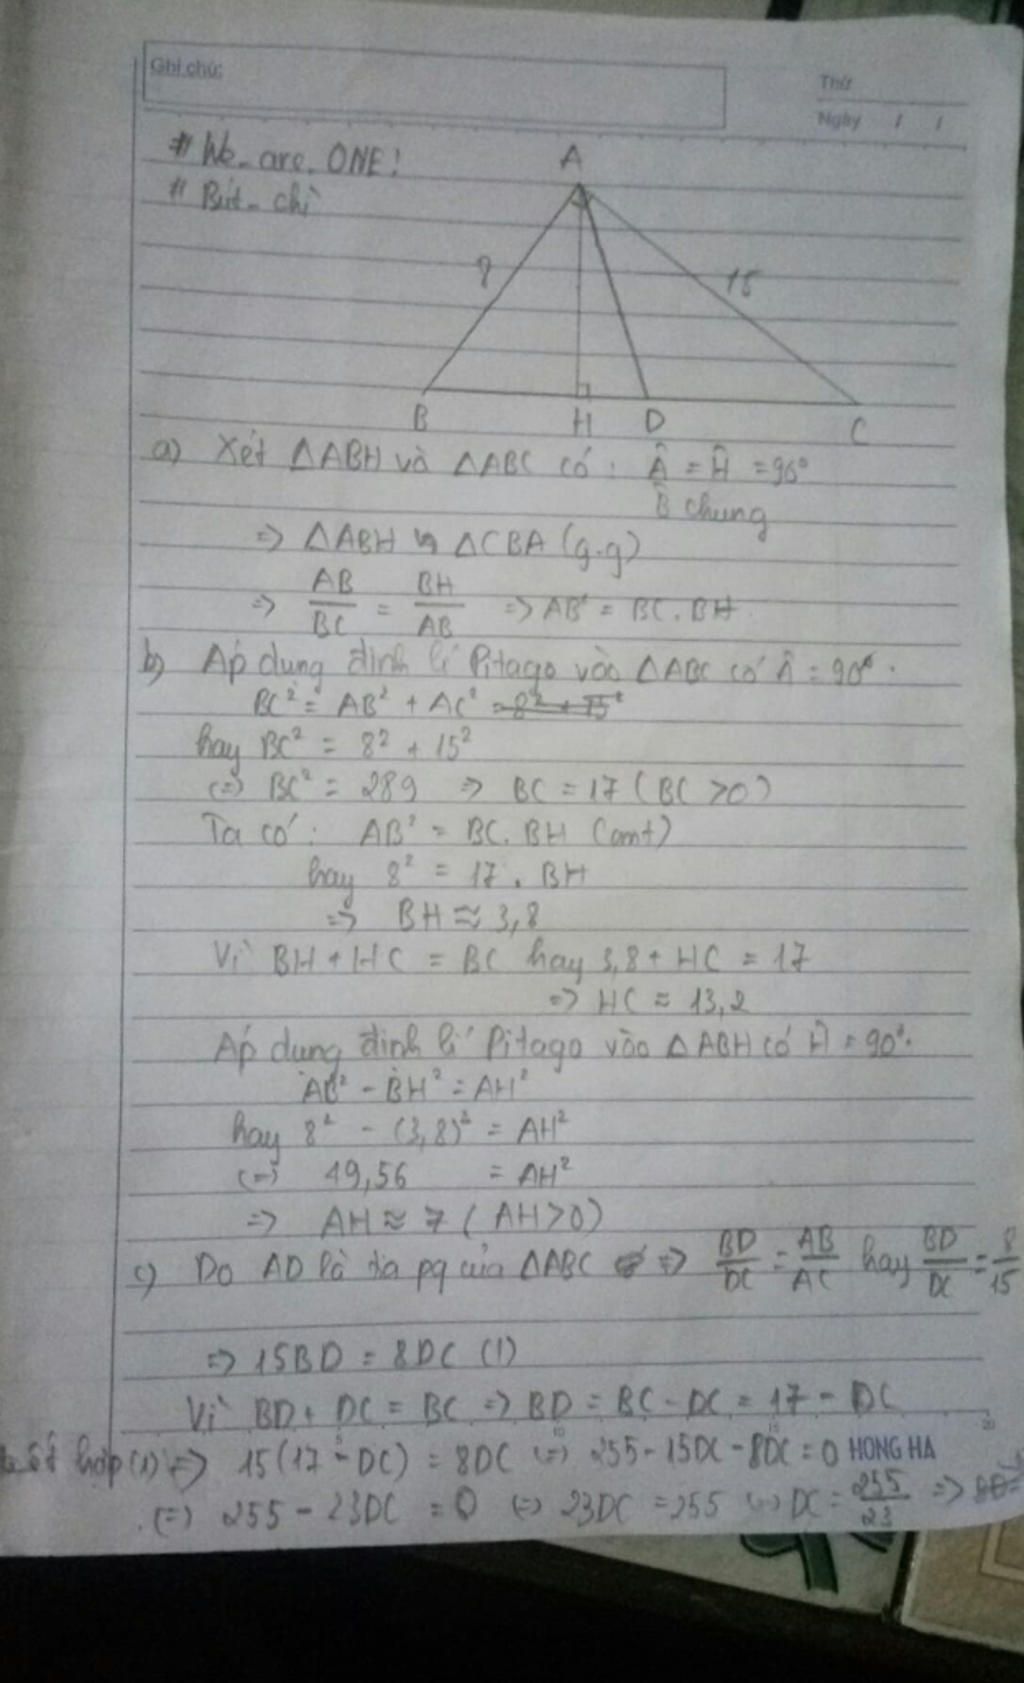 Ghi chú:
Thứ
Ngày / /
# We_are_ONE!
# Bút_chì
A
8
15
B H D C
a) Xét ΔABH và ΔABC có: Â = Ĥ = 90°
B̂ chung
=> ΔABH ∽ ΔCBA (g.g)
=> AB/BC = BH/AB => AB² = BC.BH
b) Áp dụng định lí Pitago vào ΔABC có Â = 90°.
BC² = AB² + AC² = 8² + 15²
hay BC² = 8² + 15²
(=) BC² = 289 => BC = 17 (BC >0)
Ta có: AB² = BC.BH (cmt)
hay 8² = 17.BH
=> BH ≈ 3,8
Vì BH + HC = BC hay 3,8 + HC = 17
=> HC ≈ 13,2
Áp dụng định lí Pitago vào ΔABH có Ĥ = 90°.
AB² - BH² = AH²
hay 8² - (3,8)² = AH²
(=) 49,56 = AH²
=> AH ≈ 7 (AH>0)
c) Do AD là tia pg của ΔABC => BD/DC = AB/AC hay BD/DC = 8/15
=> 15BD = 8DC (1)
Vì BD + DC = BC => BD = BC - DC = 17 - DC
hợp (1) => 15(17 - DC) = 8DC (=) 255 - 15DC - 8DC = 0 HONG HA
(=) 255 - 23DC = 0 (=) 23DC = 255 (=) DC = 255/23 =>